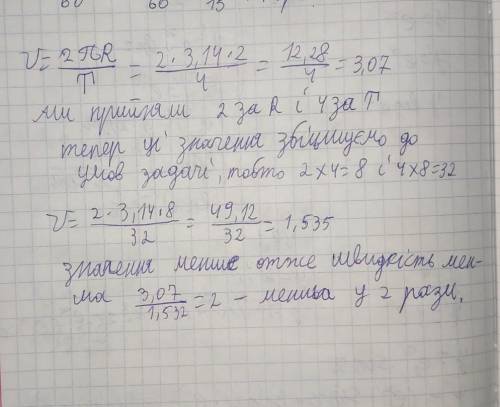 60 60 13
V = 2πR/T = 2·3,14·2/4 = 12,28/4 = 3,07
ми прийняли 2 за R і 4 за T
тепер ці значення збільшуємо до
умов задачі, тобто 2×4=8 і 4×8=32
V = 2·3,14·8/32 = 49,12/32 = 1,535
значення менше отже швидкість мен-
ша 3,07/1,532 = 2 – менша у 2 рази.